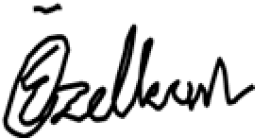 Özelkan